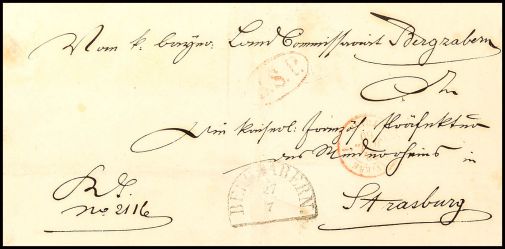 Vom k. bayer. Land Commissariat Bergzabern
R.S. No. 2116
An
Die kaiserl. französ. Präfektur
des Niederrheins in
Strasburg
BERGZABERN
27
7